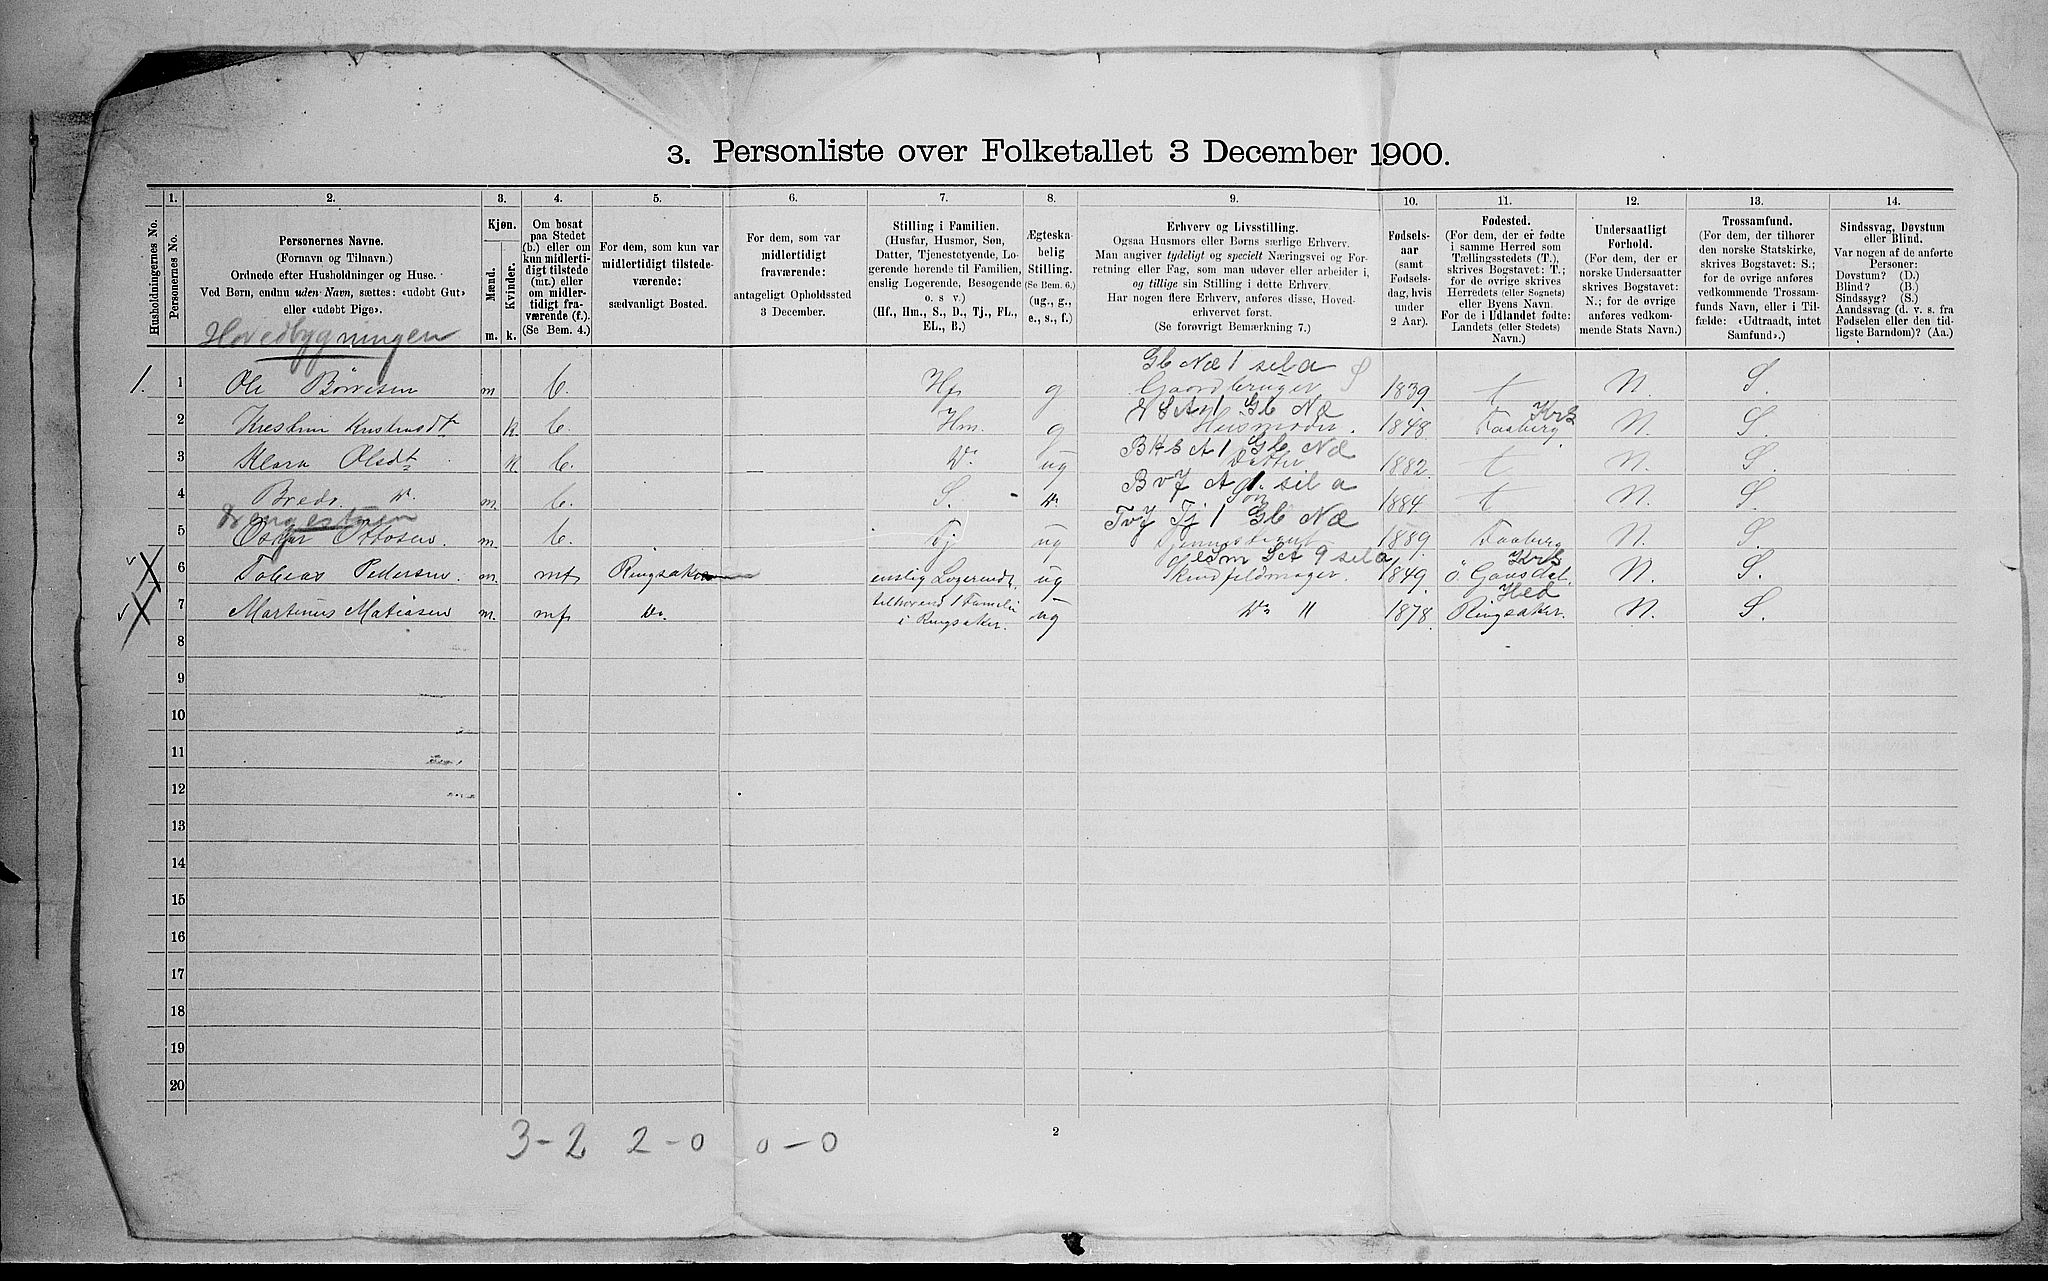 3. Personliste over Folketallet 3 December 1900.
1. 2. 3. 4. 5. 6. 7. 8. 9. 10. 11. 12. 13. 14.
Husholdningernes No.
Personernes No.
Personernes Navne.
(Fornavn og Tilnavn.)
Ordnede efter Husholdninger og Huse.
Ved Børn, endnu uden Navn, sættes: «udøbt Gut»
eller «udøbt Pige».
Kjøn.
Mænd.
Kvinder.
m. k.
Om bosat
paa Stedet
(b.) eller om
kun midlerti-
digt tilstede
(mt.) eller
om midler-
tidigt fra-
værende (f.).
(Se Bem. 4.)
For dem, som kun var
midlertidigt tilstede-
værende:
sædvanligt Bosted.
For dem, som var
midlertidigt
fraværende:
antageligt Opholdssted
3 December.
Stilling i Familien.
(Husfar, Husmor, Søn,
Datter, Tjenestetyende, Lo-
gerende hørende til Familien,
enslig Logerende, Besøgende
o. s v.)
(Hf., Hm., S., D., Tj., FL.,
EL., B.)
Ægteska-
belig
Stilling.
(Se Bem. 6.)
(ug., g.,
e., s., f.)
Erhverv og Livsstilling.
Ogsaa Husmors eller Børns særlige Erhverv.
Man angiver tydeligt og specielt Næringsvei og For-
retning eller Fag, som man udøver eller arbeider i,
og tillige sin Stilling i dette Erhverv.
Har nogen flere Erhverv, anføres disse, Hoved-
erhvervet først.
(Se forøvrigt Bemærkning 7.)
Fødsels-
aar
(samt
Fødsels-
dag, hvis
under
2 Aar).
Fødested.
(For dem, der er fødte
i samme Herred som
Tællingsstedets (T.),
skrives Bogstavet: T.;
for de øvrige skrives
Herredets (eller Sognets)
eller Byens Navn.
For de i Udlandet fødte:
Landets (eller Stedets)
Navn.)
Undersaatligt
Forhold.
(For dem, der er
norske Undersaatter
skrives Bogstavet:
N.; for de øvrige
anføres vedkom-
mende Stats Navn.)
Trossamfund.
(For dem, der tilhører
den norske Statskirke,
skrives Bogstavet: S.;
for de øvrige anføres
vedkommende Trossam-
funds Navn, eller i Til-
fælde: «Udtraadt, intet
Samfund».)
Sindssvag, Døvstum
eller Blind.
Var nogen af de anførte
Personer:
Døvstum? (D.)
Blind? (B.)
Sindssyg? (S.)
Aandssvag (d. v. s. fra
Fødselen eller den tid-
ligste Barndom)? (Aa.)
Hovedbygningen
Gb Næ 1 sela
1. 1 Ole m. b. Hf g Gaardbruger S 1839 t N. S.
Gb Næ Krs
2 k. b. Hm. g Husmoder. 1848. Faaberg N. S.
Gb Næ
3 Klara Olsdt k b. Do ug Datter 1882. t N. S.
sela
4 Do m. b. S. Do Søn 1884. t N. S.
Tvf Tj 1 Gb Næ
5 Oscar Ottosen. m. b. Tj ug 1889. Faaberg N. S.
9 sela Krs
6 Tobias Pedersen. m. mt Ringsaker enslig Logerende ug Skindfeldmager. 1849. Ö. Gausdal. N. S.
tilhørend 1 Familie Hed
7 Martinus Matiasen m. mt Do. i Ringsaker. ug Do 11 1878. Ringsaker. N. S.
8
9
10
11
12
13
14
15
16
17
18
19
20
3-2 2-0 0-0
2